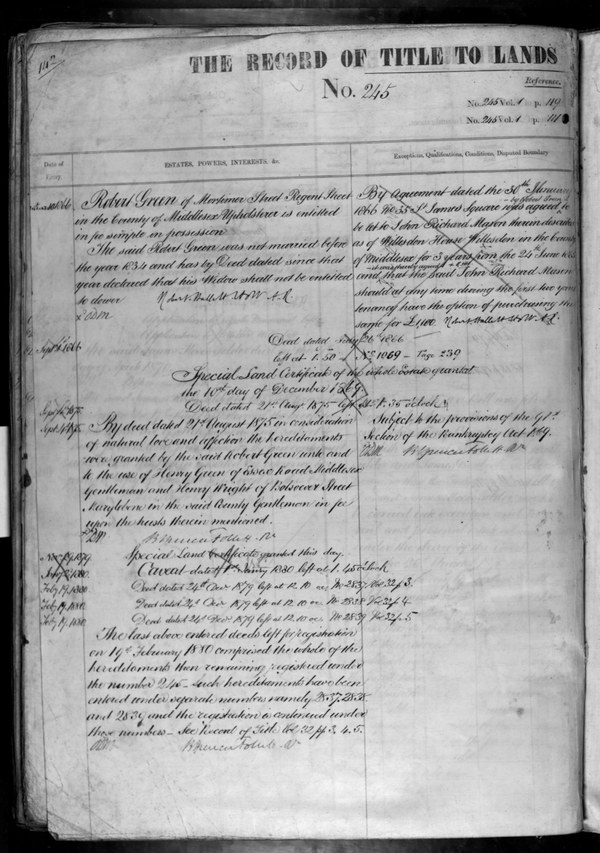 THE RECORD OF TITLE TO LANDS
No. 245
Reference.
No. 245 Vol. 1 p. 119
No. 245 Vol. 1 p.
Date of Entry
ESTATES, POWERS, INTERESTS, &c.
Exceptions, Qualifications, Conditions, Disputed Boundary
1866
Robert Green of Mortimer Street Regent Street
in the County of Middlesex Upholsterer is entitled
in fee simple in possession
The said Robert Green was not married before
the year 1834 and has by Deed dated since that
year declared that his Widow shall not be entitled
to dower
By Agreement dated the 30th January
1866 No 35 St James Square
by Robert Green
is agreed to
be let to John Richard Mason therein described
as of Willesden House Willesden in the County
of Middlesex for 3 years from the 24 June
and that the said John Richard Mason
should at any time during the first two years
tenancy have the option of purchasing the
same for £
Deed dated 1866
left at 1.50 No 1069 - Page 239
Special Land Certificate of the whole Estate granted
the 10th day of December 1869
Deed dated 21st Augt 1875 left at 1.35 o'clock
By deed dated 21st August 1875 in consideration
of natural love and affection the hereditaments
were granted by the said Robert Green unto and
to the use of Henry Green of Essex Road Middlesex
Gentleman and Henry Wright of Bolsover Street
Marylebone in the said County Gentleman in fee
upon the trusts therein mentioned.
Subject to the provisions of the 91st
Section of the Bankruptcy Act 1869.
Nov 19 1879
Special Land Certificate granted this day.
Caveat dated 1880 left at 1.45 o'clock
Feby 19. 1880.
Deed dated 24th Decr 1879 left at 12.10 No 2837 Vol 32 p 3.
Feby 19. 1880.
Deed dated 24th Decr 1879 left at 12.10 No 2838 Vol 32 p. 4.
Feby 19. 1880.
Deed dated 24th Decr 1879 left at 12.10 No 2839 Vol 32 p. 5.
The last above entered deeds left for registration
on 19th February 1880 comprised the whole of the
hereditaments then remaining registered under
the number 245 - Such hereditaments have been
entered under separate numbers namely 2837. 2838.
and 2839 and the registration is continued under
those numbers - See Record of Title Vol. 32 pp 3. 4. 5.